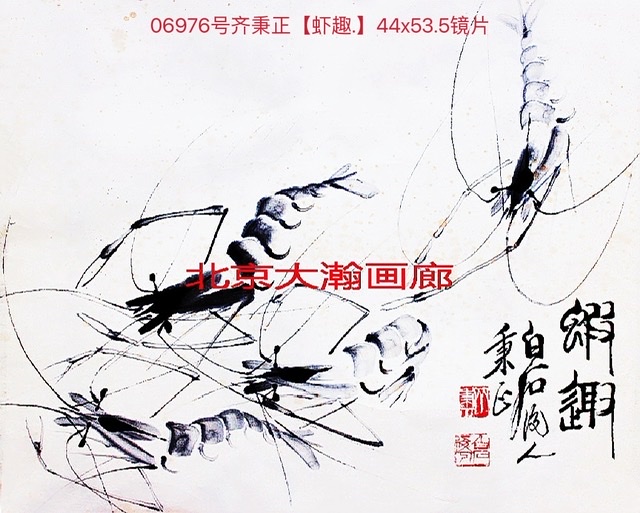 06976号齐秉正【虾趣.】44x53.5镜片
北京大瀚画廊
蝦趣
白石後人
秉正